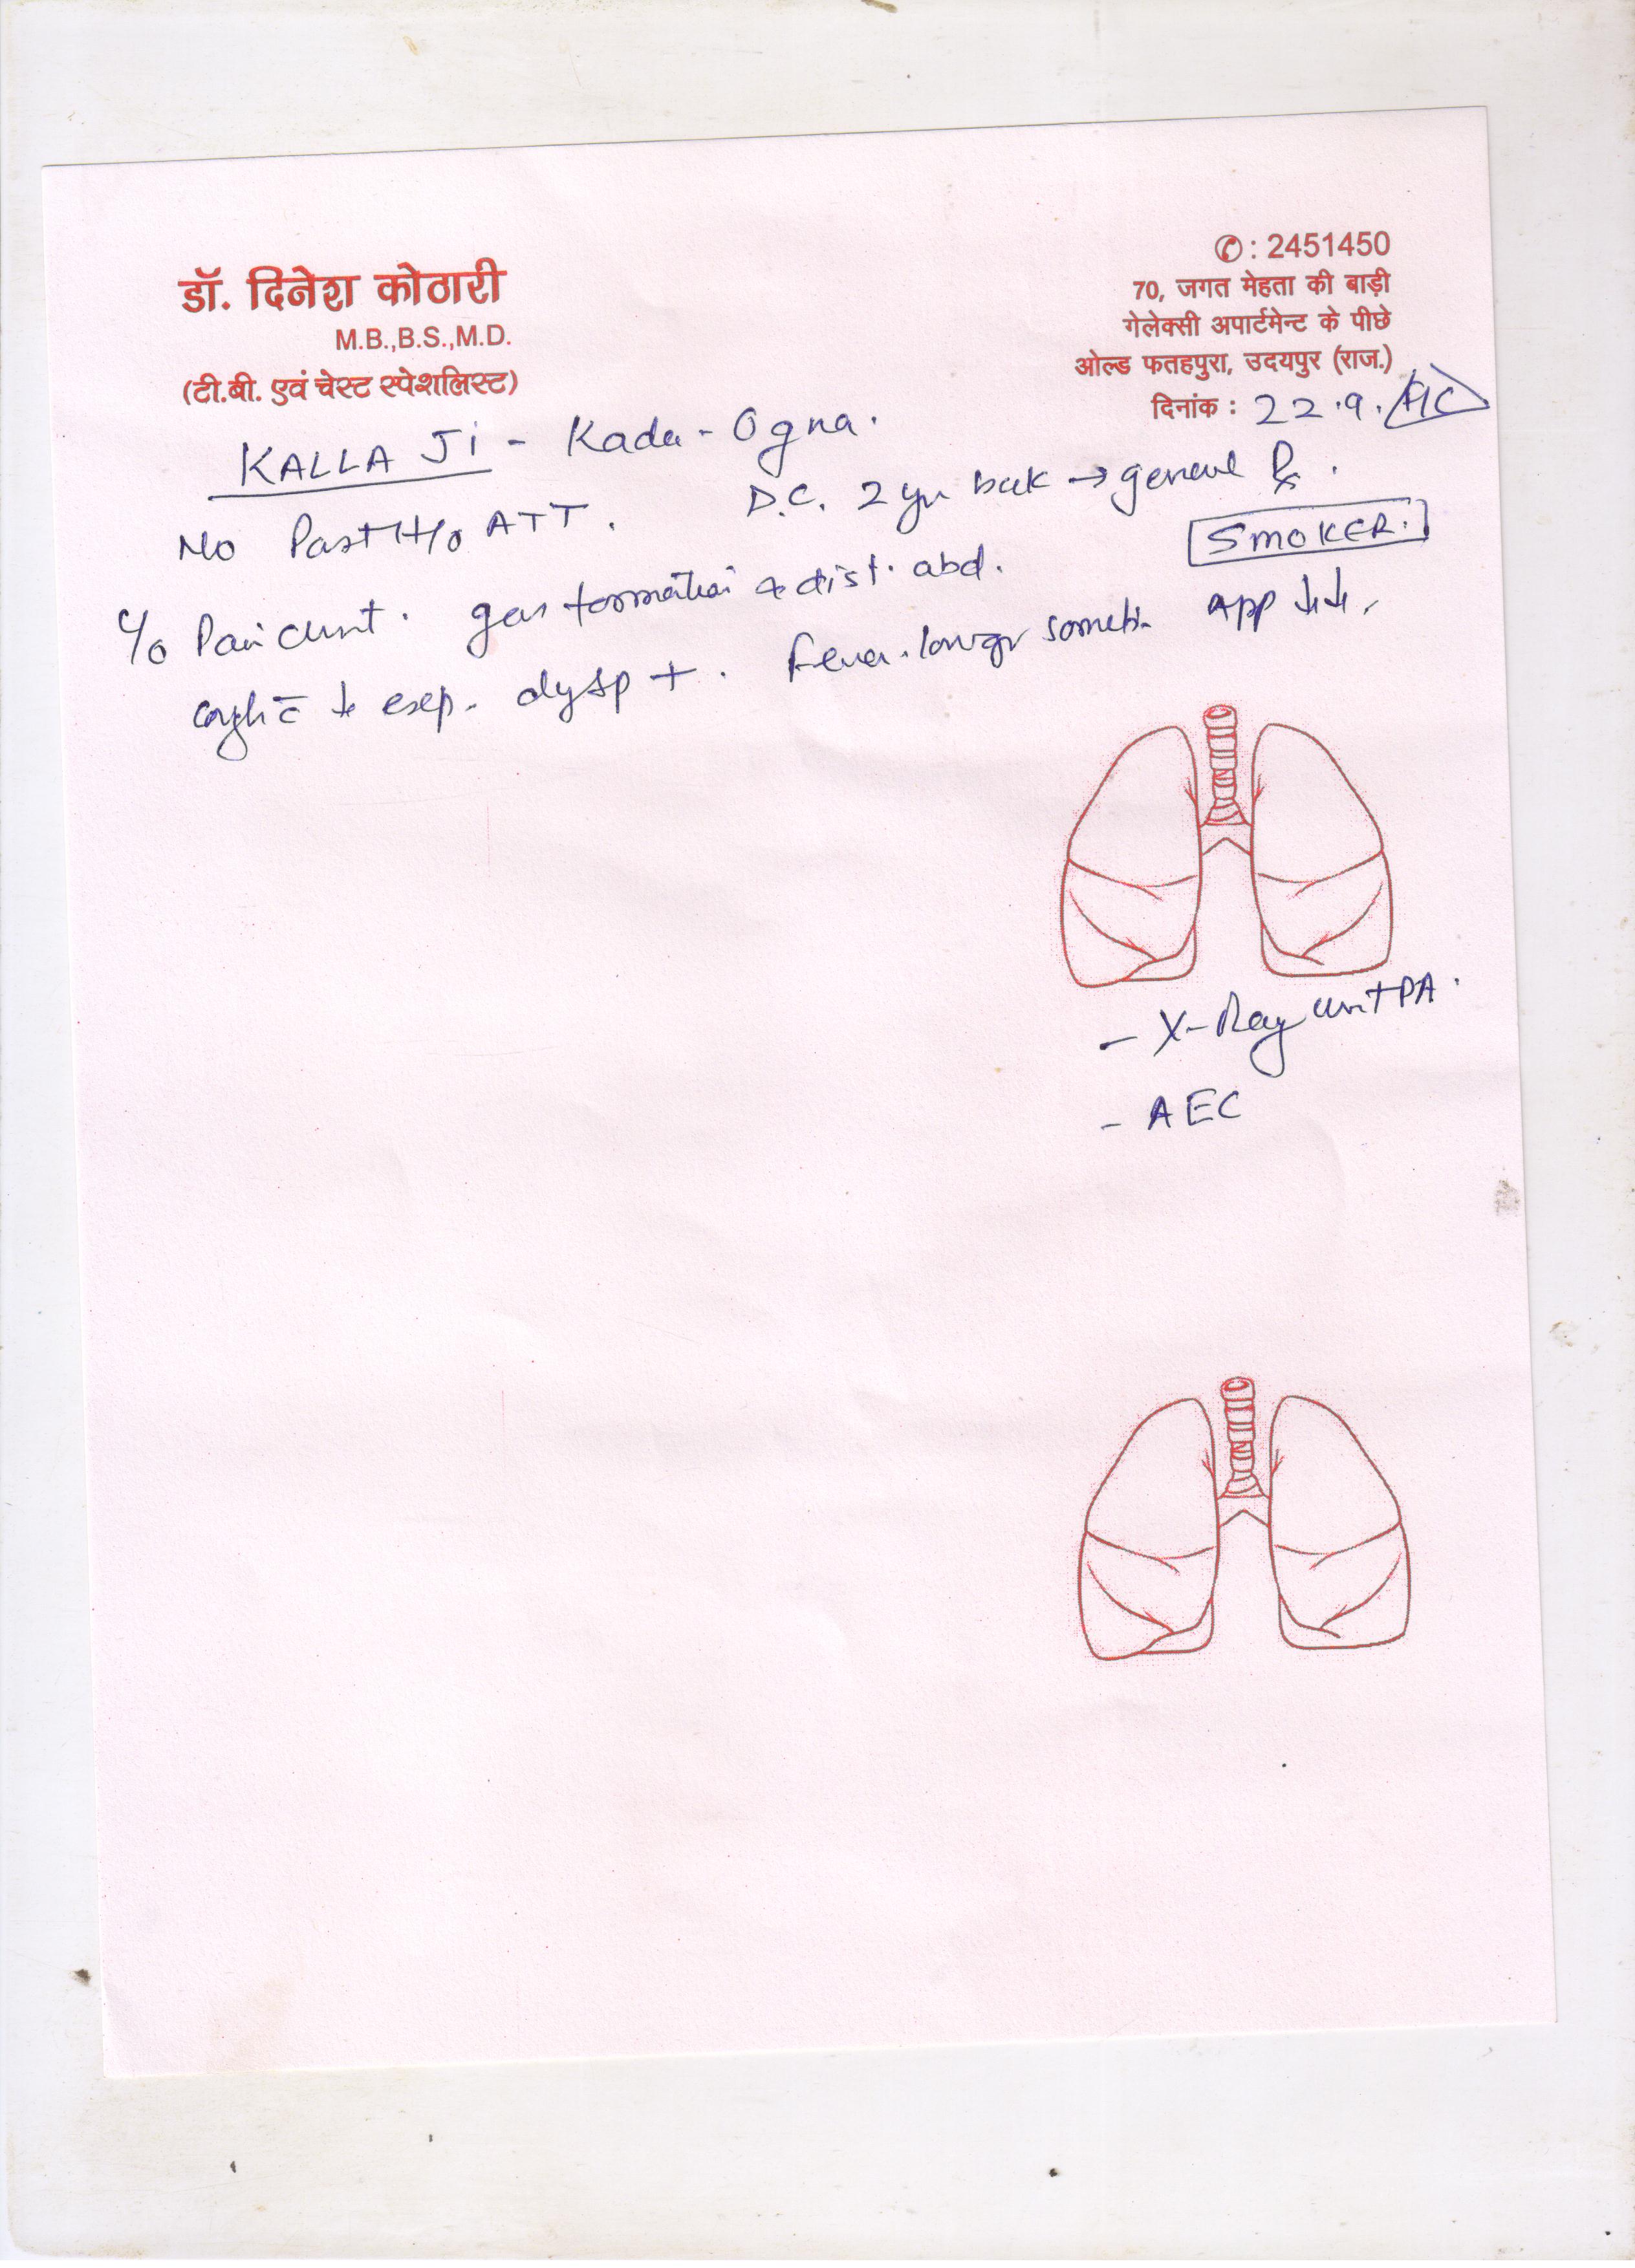 ✆ : 2451450
डॉ. दिनेश कोठारी
70, जगत मेहता की बाड़ी
M.B.,B.S.,M.D.
गेलेक्सी अपार्टमेन्ट के पीछे
(टी.बी. एवं चेस्ट स्पेशलिस्ट)
ओल्ड फतहपुरा, उदयपुर (राज.)
दिनांक : 22.9.
KALLA Ji - Kada - Ogna.
No Past H/o ATT. D.C. 2 yr back → general Rx.
SMOKER.
C/o Pain chest. gas formation & dist. abd.
App ↓↓.
cough c̄ ↓ exp. dysp +. Fever. low gr
- X-Ray chest PA.
- AEC